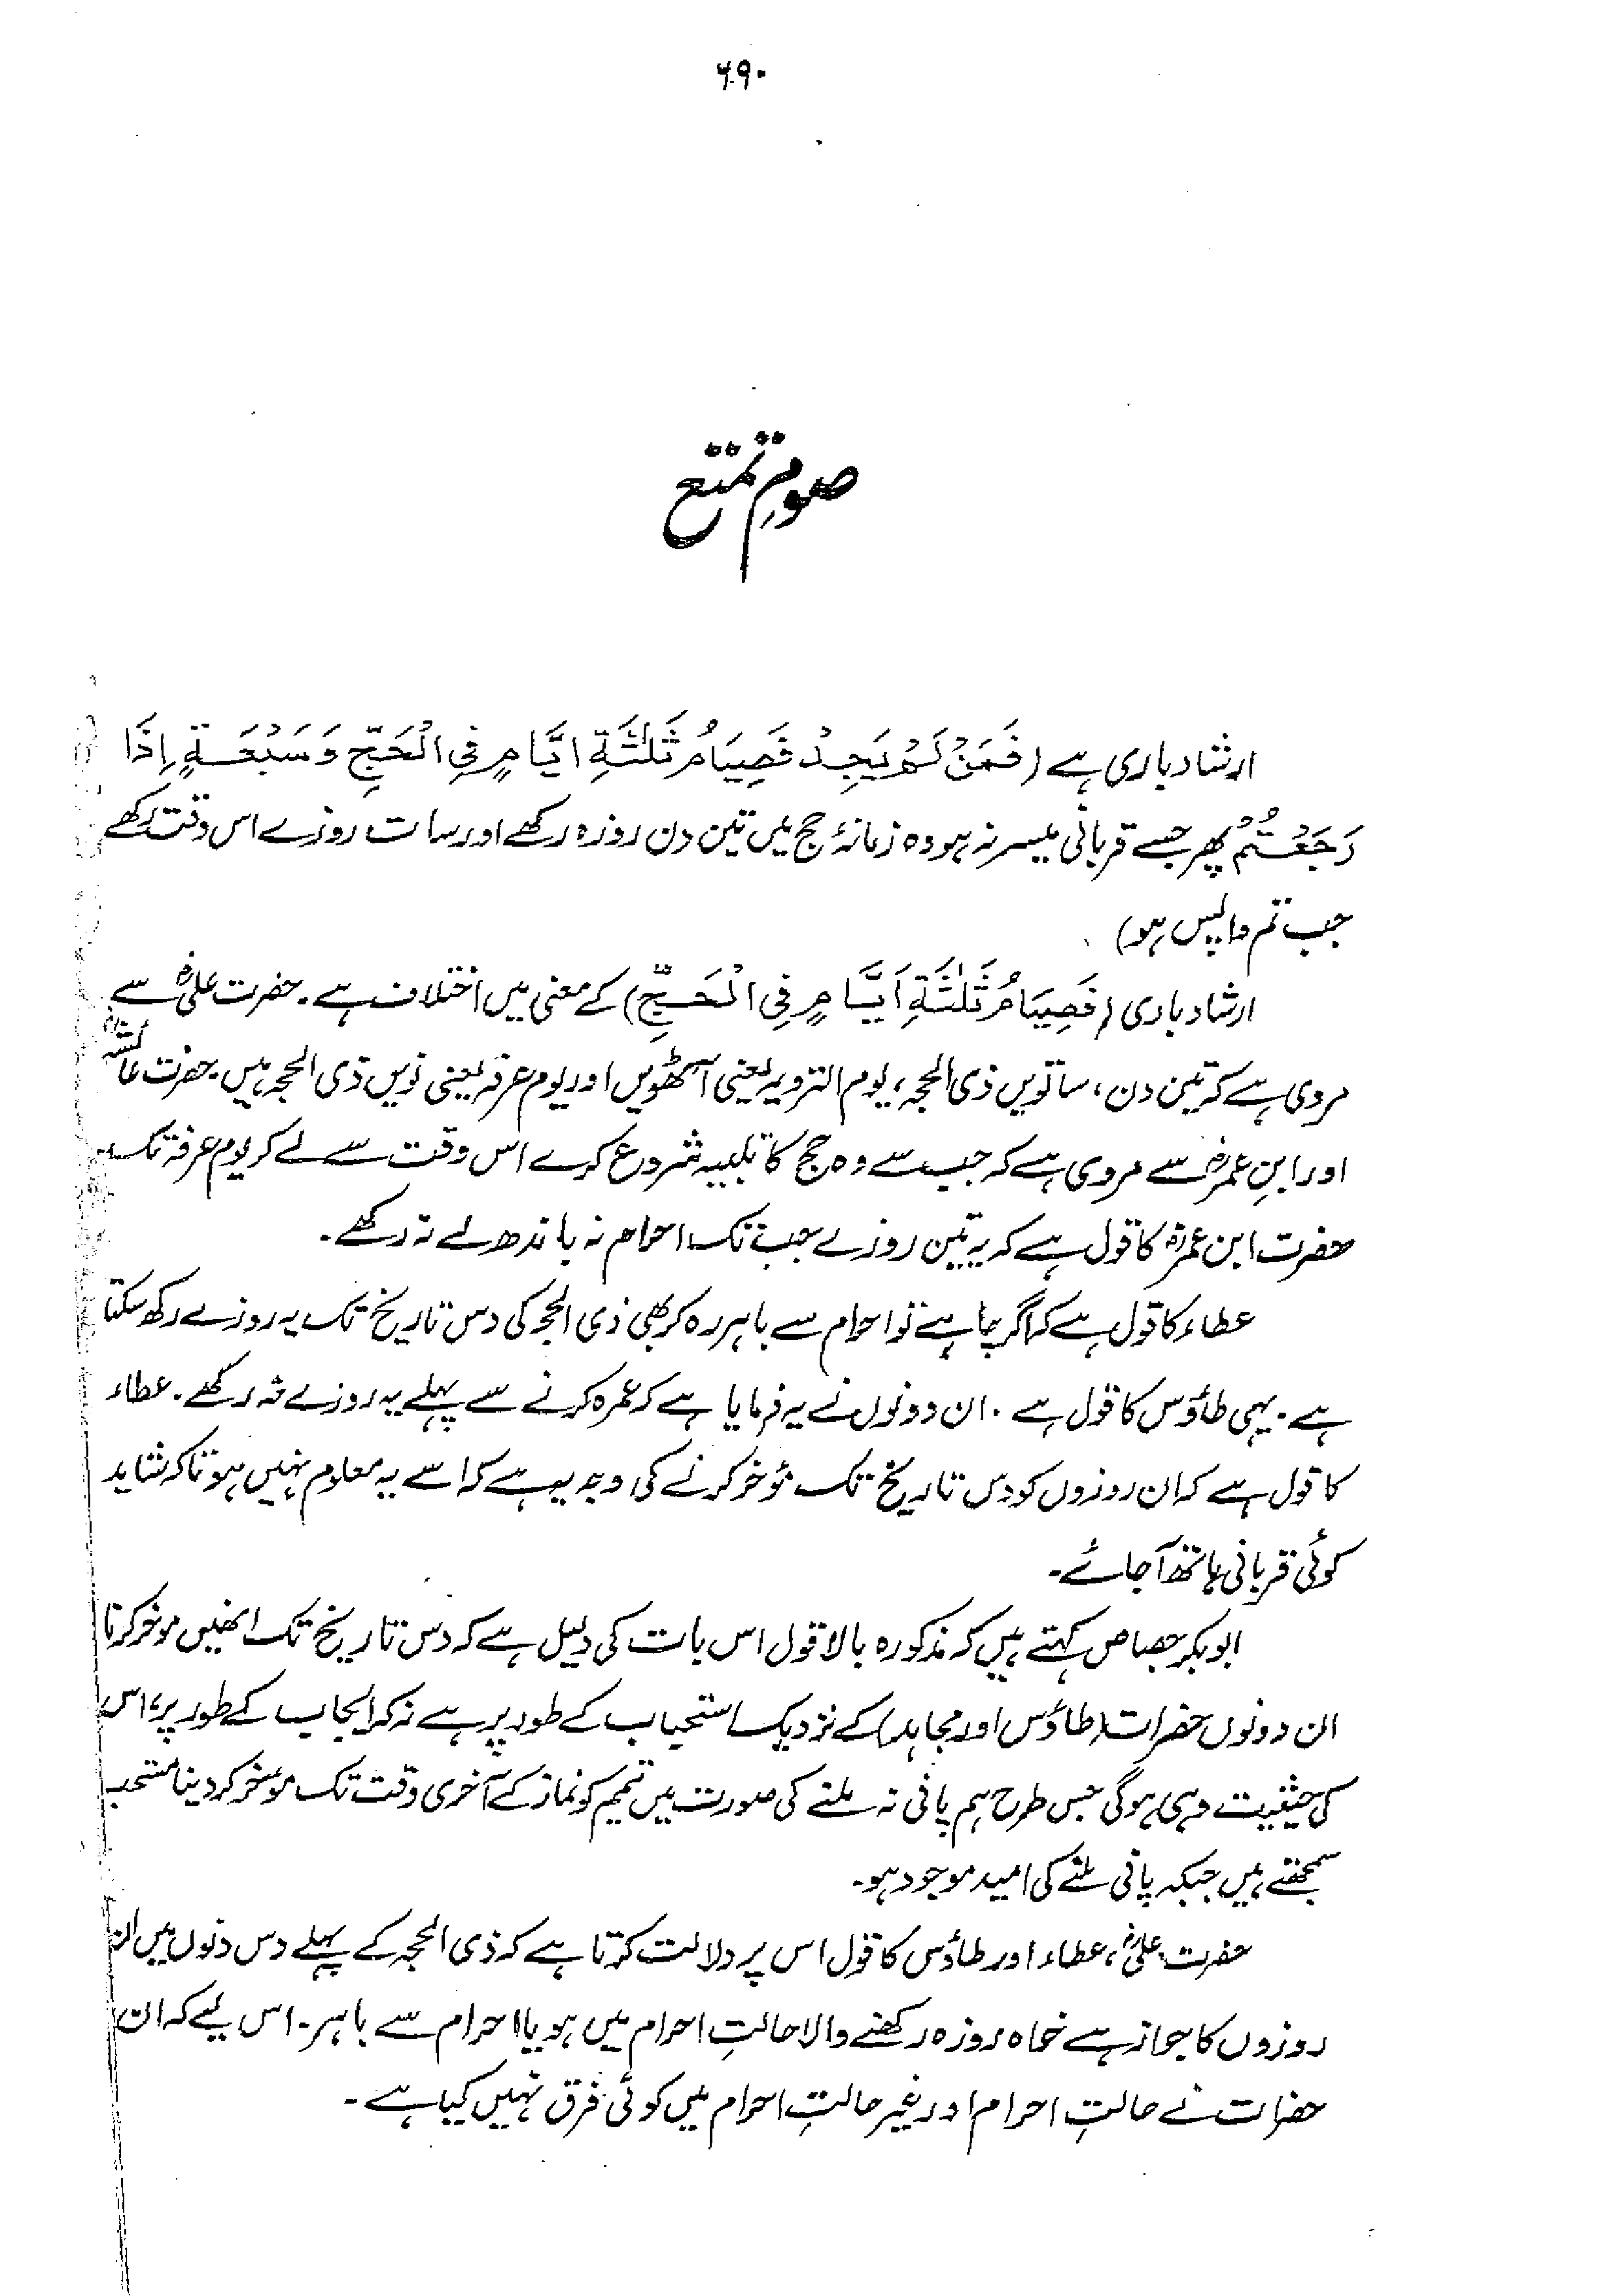 ۶۹۰
صومِ تمتع
ارشاد باری ہے (فَمَنْ لَمْ يَجِدْ فَصِيَامُ ثَلٰثَةِ اَيَّامٍ فِي الْحَجِّ وَسَبْعَةٍ اِذَا
رَجَعْتُمْ پھر جسے قربانی میسر نہ ہو وہ زمانۂ حج میں تین دن روزہ رکھے اور سات روزے اس وقت رکھے
جب تم واپس ہو)
ارشاد باری (فَصِيَامُ ثَلٰثَةِ اَيَّامٍ فِي الْحَجِّ) کے معنی میں اختلاف ہے۔ حضرت علیؓ سے
مروی ہے کہ تین دن، ساتویں ذی الحجہ، یوم الترویہ یعنی آٹھویں اور یوم عرفہ یعنی نویں ذی الحجہ ہیں۔ حضرت عائشہؓ
اور ابنِ عمرؓ سے مروی ہے کہ جب سے وہ حج کا تلبیہ شروع کرے اس وقت سے لے کر یوم عرفہ تک۔
حضرت ابن عمرؓ کا قول ہے کہ یہ تین روزے جب تک احرام نہ باندھ لے نہ رکھے۔
عطاء کا قول ہے کہ اگر چاہے تو احرام سے باہر رہ کر بھی ذی الحجہ کی دس تاریخ تک یہ روزے رکھ سکتا
ہے۔ یہی طاؤس کا قول ہے۔ ان دونوں نے یہ فرمایا ہے کہ عمرہ کرنے سے پہلے یہ روزے نہ رکھے۔ عطاء
کا قول ہے کہ ان روزوں کو دس تاریخ تک مؤخر کرنے کی وجہ یہ ہے کہ اسے یہ معلوم نہیں ہوتا کہ شاید
کوئی قربانی ہاتھ آ جائے۔
ابوبکر جصاص کہتے ہیں کہ مذکورہ بالا قول اس بات کی دلیل ہے کہ دس تاریخ تک انھیں موخر کرنا
ان دونوں حضرات (طاؤس اور مجاہد) کے نزدیک استحباب کے طور پر ہے نہ کہ ایجاب کے طور پر، اس
کی حیثیت وہی ہوگی جس طرح ہم پانی نہ ملنے کی صورت میں تیمم کو نماز کے آخری وقت تک موخر کر دینا مستحب
سمجھتے ہیں جبکہ پانی ملنے کی امید موجود ہو۔
حضرت علیؓ، عطاء اور طاؤس کا قول اس پر دلالت کرتا ہے کہ ذی الحجہ کے پہلے دس دنوں میں ان
روزوں کا جواز ہے خواہ روزہ رکھنے والا حالتِ احرام میں ہو یا احرام سے باہر۔ اس لیے کہ ان
حضرات نے حالتِ احرام اور غیر حالتِ احرام میں کوئی فرق نہیں کیا ہے۔